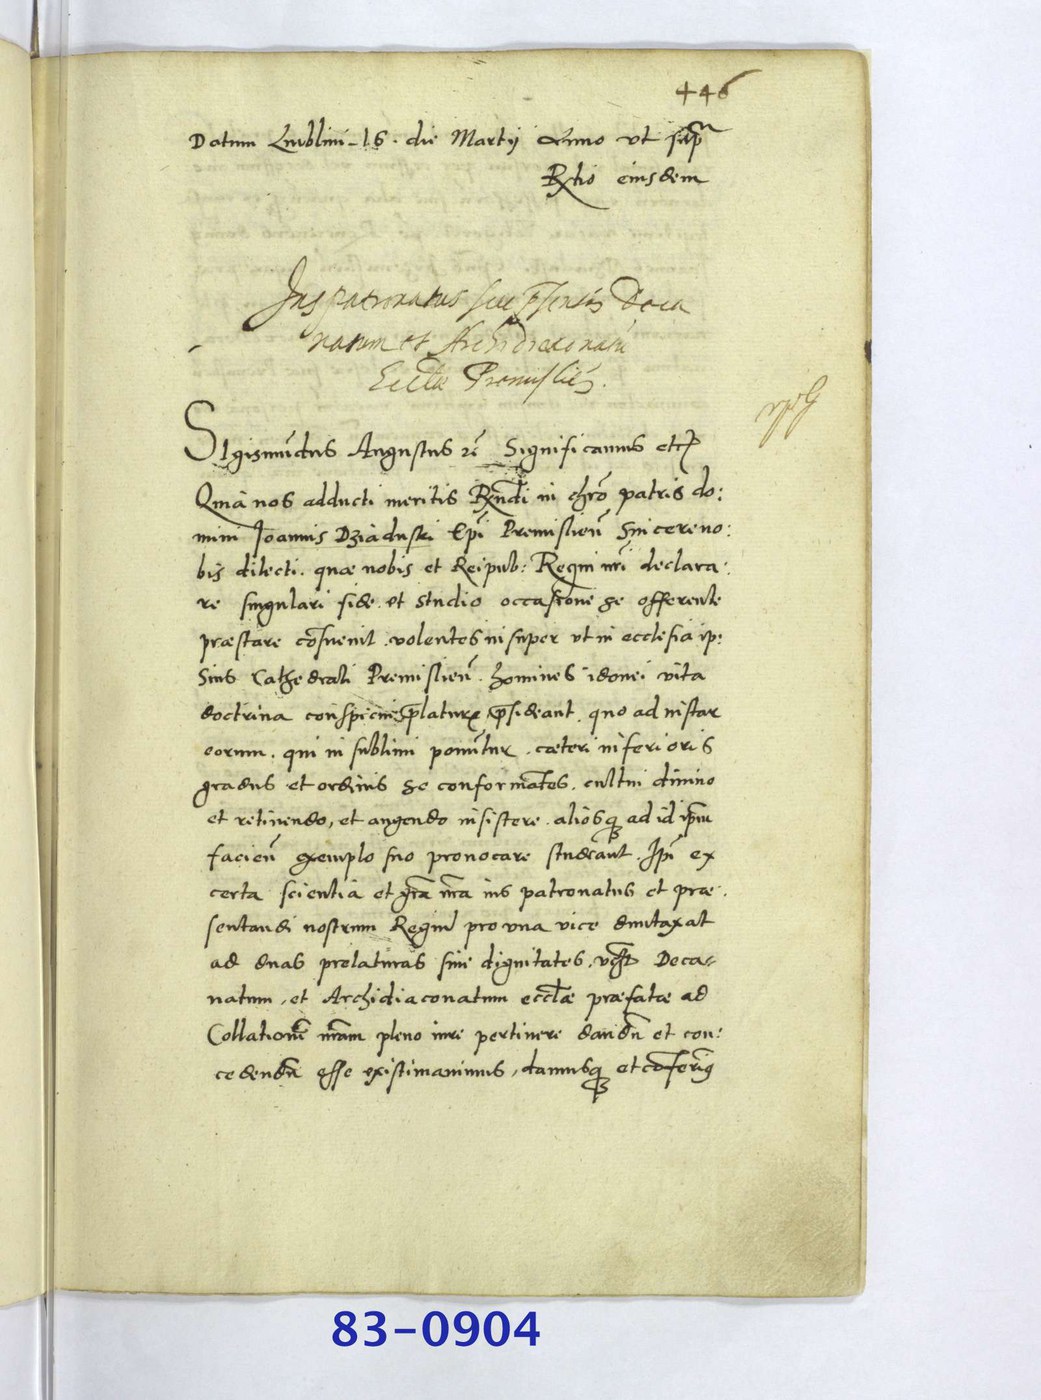 446
Datum Lublini 16. die Martij Anno ut supr
Rtio eiusdem
Jus patronatus seu pñtandi Deca
natum et Archidiaconatū
Ecctæ Premisliēn.
SIgismūdus Augustus rē Significamus etc
Qmā nos adducti meritis Rñdi in chrō patris do:
mini Joannis Dziaduski Epī Premislieñ Sincere no:
bis dilecti. quæ nobis et Reipub: Regni nr̄i declara:
re singulari fide et studio occasione se offerente
præstare cōsuevit. volentes insuper ut in ecclesia ip:
sius Cathedrali Premislieñ. homines idonei vita
doctrina conspicui prælaturæ præsideant. quo ad instar
eorum. qui in sublimi ponūtur. cæteri inferioris
gradus et ordinis se conformātes. cultui divino
et retinendo, et augendo insistere. aliosq ad id ipm
facieñ exemplo suo provocare studeant. Ipī ex
certa scientia et grā nrā ius patronatus et præ:
sentandi nostrum Regiū pro una vice duntaxat
ad duas prelaturas sive dignitates. vcȝt Deca-
natum, et Archidiaconatum ecclæ præfatæ ad
Collationē nrām pleno iure pertinere dandū et con:
cedendū esse existimavimus, damusq et cōferimȝ